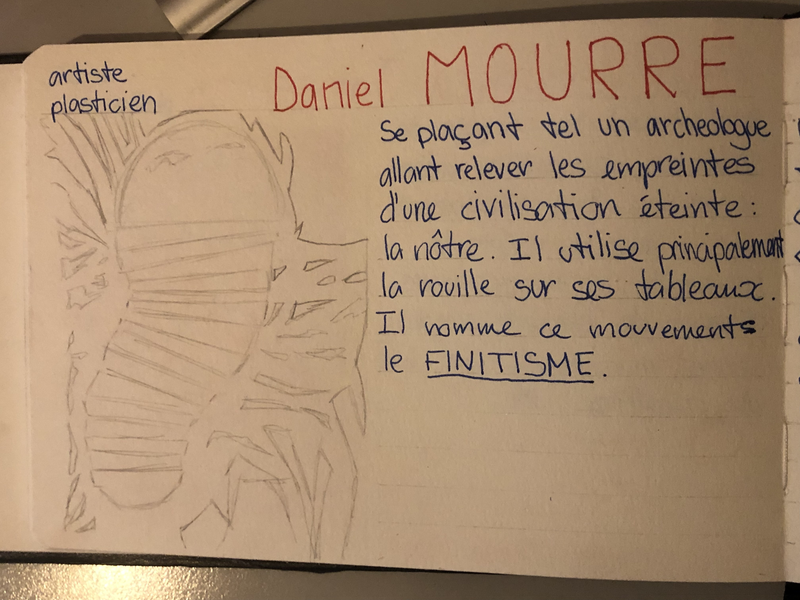 artiste
plasticien
Daniel MOURRE
Se plaçant tel un archeologue
allant relever les empreintes
d'une civilisation éteinte :
la nôtre. Il utilise principalement
la rouille sur ses tableaux.
Il nomme ce mouvements
le FINITISME.